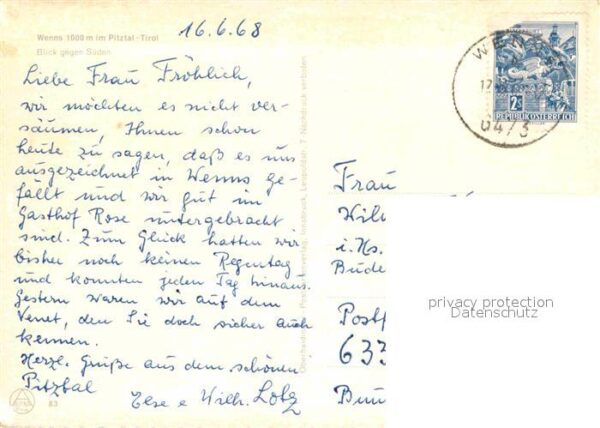 Wenns 1000 m im Pitztal-Tirol
Blick gegen Süden
16.6.68
Liebe Frau Fröhlich,
wir möchten es nicht ver-
säumen, Ihnen schon
heute zu sagen, daß es uns
ausgezeichnet in Wenns ge-
fällt und wir gut im
Gasthof Rose untergebracht
sind. Zum Glück hatten wir
bisher noch keinen Regentag
und konnten jeden Tag hinaus.
Gestern waren wir auf dem
Venet, den Sie doch sicher auch
kennen.
Herzl. Grüße aus dem schönen
Pitztal
Else u Wilh. Lotz
83
Innsbruck, Nachdruck verboten
WEN
17
6473
2S
REPUBLIK ÖSTERREICH
Frau
i. Hs.
Bude
Postf
633
privacy protection
Datenschutz